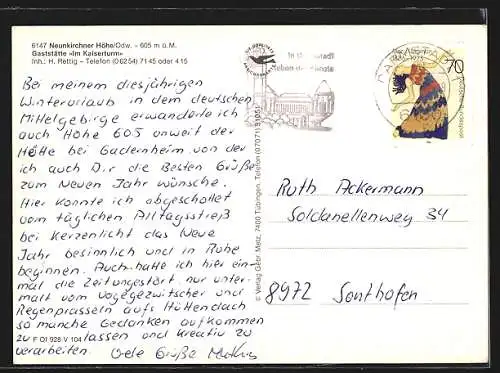 6147 Neunkirchner Höhe/Odw. - 605 m ü.M.
Gaststätte »Im Kaiserturm«
Inh.: H. Rettig - Telefon (0 62 54) 71 45 oder 4 15
Bei meinem diesjährigen
Winterurlaub in dem deutschen
Mittelgebirge erwanderte ich
auch Höhe 605 unweit der
Hütte bei Gadernheim von der
ich auch Dir die Besten Grüße
zum Neuen Jahr wünsche.
Hier konnte ich abgeschottet
vom täglichen Alltagsstreß
bei Kerzenlicht das Neue
Jahr besinnlich und in Ruhe
beginnen. Auch hatte ich hier ein-
mal die Zeit ungestört nur unter-
malt vom Vogelgezwitscher und
Regenprasseln aufs Hüttendach
so manche Gedanken aufkommen
zu lassen und kreativ zu
verarbeiten. Viele Grüße
F OI 928 V 104
© Verlag Gebr. Metz, 7400 Tübingen, Telefon (07071)
70
Ruth Ackermann
Soldanellenweg 34
8972 Sonthofen